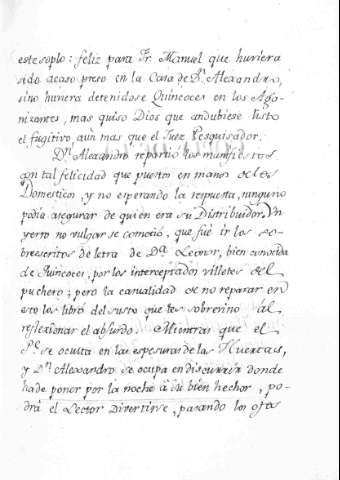 este soplo: feliz para Fr. Manuel que huviera
sido acaso preso en la Casa de Dn. Alexandro,
sino huviera detenidose Quincoces en los Ago-
nizantes, mas quiso Dios que andubiese listo
el fugitivo, aun mas que el Juez Pesquisador.
Dn. Alexandro repartio los manifiestos
con tal felicidad que puestos en manos de los
Domesticos, y no esperando la repuesta, ninguno
podia asegurar de quien era su Distribuidor. Un
yerro no vulgar se cometió, que fué ir los so-
brescritos de letra de Da. Lector, bien conocida
de Quincoces, por los interceptados villetes del
puchero; pero la casualidad de no reparar en
esto los libró del susto que les sobrevino al
reflexionar el absurdo. Mientras que el
Pe. se oculta en las espesuras de las Huertas,
y Dn. Alexandro se ocupa en discurrir donde
hade poner por la noche à su bien hechor, po-
drá el Lector Divertirse, pasando los ojos